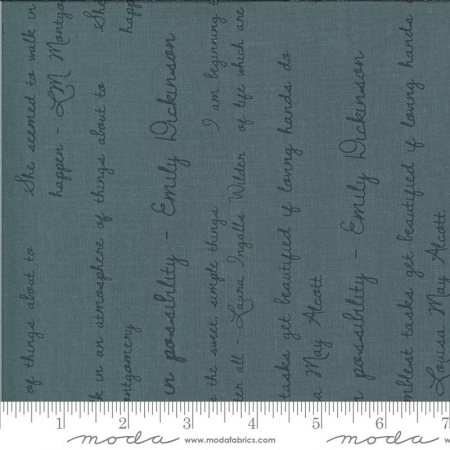 of things about to She seemed to walk in
happen - LM Montgo
k in an atmosphere of things about to She
ontgomery happ
in possibility - Emily Dickinson
s the sweet, simple things I am beginning
ter all - Laura Ingalls Wilder of life which are
tasks get beautified if loving hands do
a May Alcott
possibility - Emily Dickinson
mblest tasks get beautified if loving hands
Louisa May Alcott
1 2 3 4 5 6 7
moda www.modafabrics.com moda